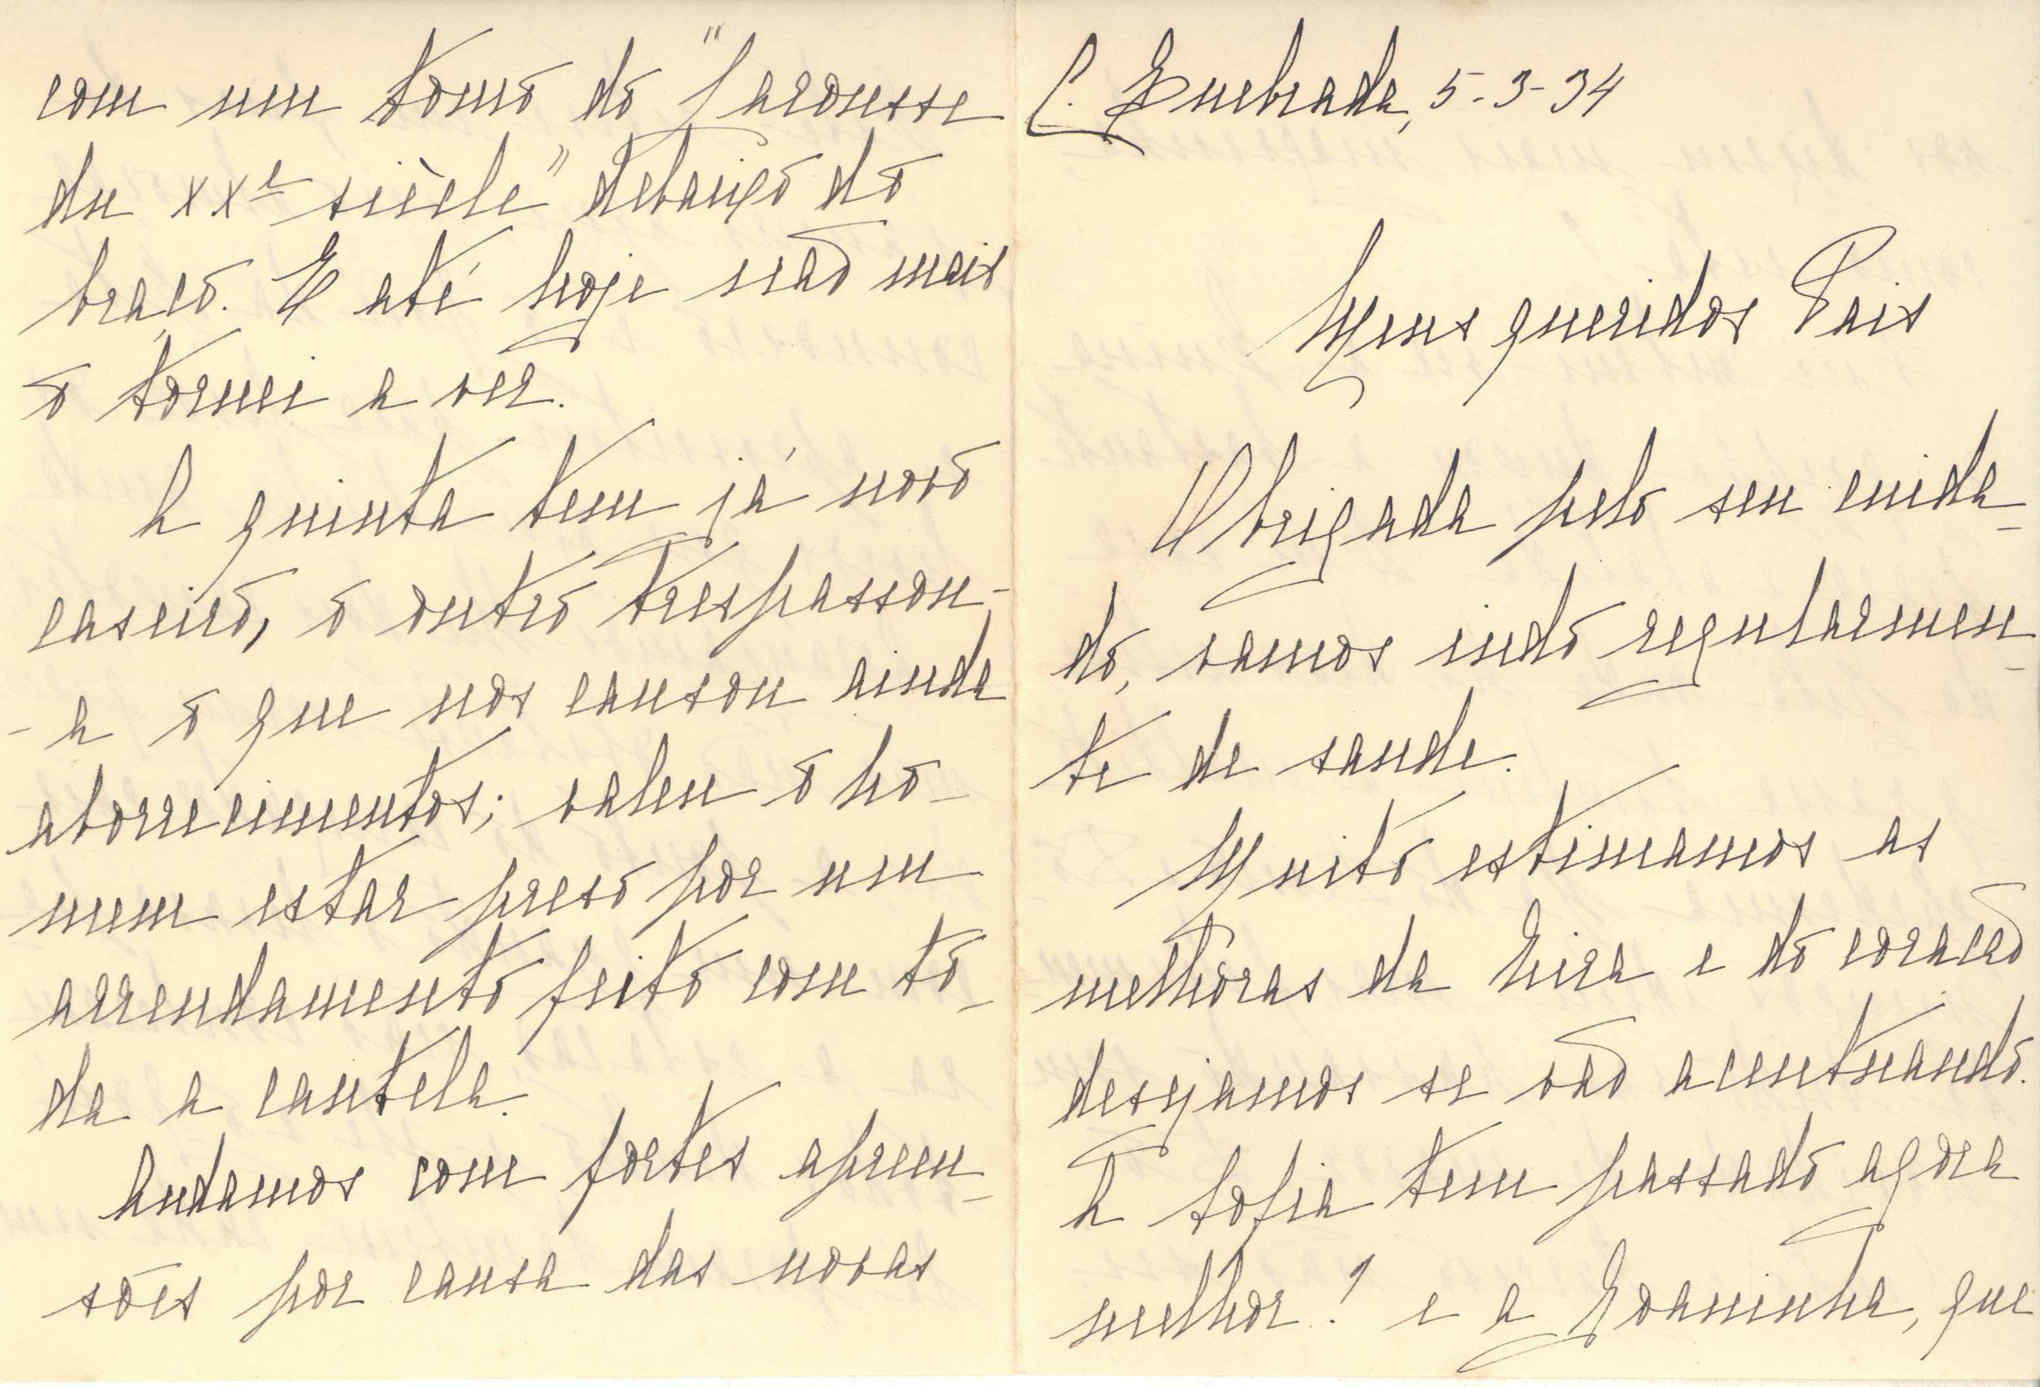 com um tomo do "Larousse
du XXe siècle" debaixo do
braço. E até hoje não mais
o tornei a ver.
A quinta tem já novo
caseiro, o outro trespassou-
-a o que nos causou ainda
aborrecimentos; valeu o ho-
mem estar preso por um
arrendamento feito com tô-
da a cautela.
Andamos com fortes apreen-
sões por causa das novas
C. Quebrada, 5-3-34
Meus queridos Pais
Obrigada pelo seu cuida-
do, vamos indo regularmen-
te de saude.
Muito estimamos as
melhoras da e do coração
desejamos se vão acentuando.
A Sofia tem passado agora
melhor? e a Joaninha, que